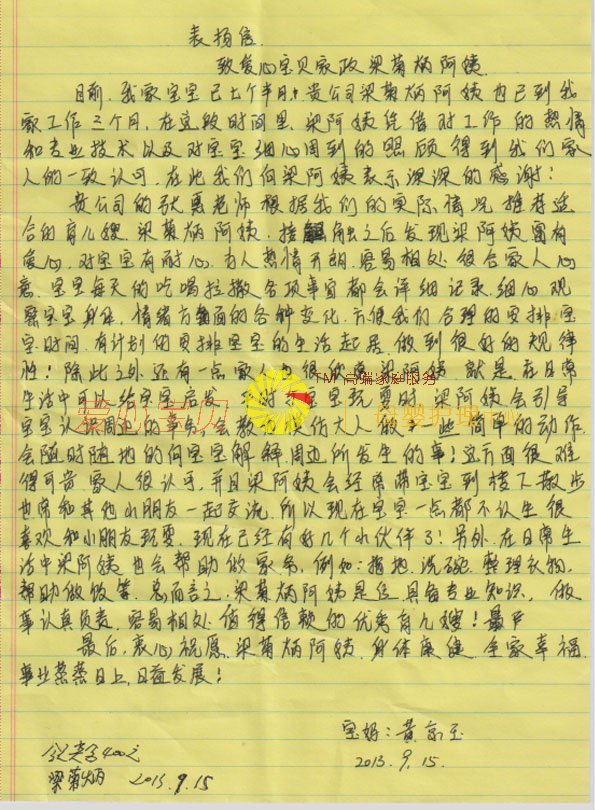 表扬信
致爱心宝贝家政梁菊炳阿姨
目前,我家宝宝已七个半月,贵公司梁菊炳阿姨也已到我
家工作三个月,在这段时间里,梁阿姨凭借对工作的热情
和专业技术以及对宝宝细心周到的照顾得到我们家
人的一致认可,在此我们向梁阿姨表示深深的感谢!
贵公司的张惠老师根据我们的实际情况推荐适
合的育儿嫂,梁菊炳阿姨,接触之后发现梁阿姨富有
爱心,对宝宝有耐心,为人热情开朗,容易相处,很合家人心
意,宝宝每天的吃喝拉撒各项事宜都会详细记录,细心观
察宝宝身体,情绪方面的各种变化,方便我们合理的安排宝
宝时间,有计划的安排宝宝的生活起居,做到很好的规律
性!除此之外还有一点家人也很欣赏梁阿姨,就是在日常
生活中可以给宝宝启发,在对宝宝玩耍时,梁阿姨会引导
宝宝认识周边的事物,会教模仿大人做一些简单的动作,
会随时随地的向宝宝解释周边所发生的事!这方面很难
得可贵,家人很认可,并且梁阿姨会经常带宝宝到楼下散步
也常和其他小朋友一起交流,所以现在宝宝一点都不认生,很
喜欢和小朋友玩耍,现在已经有好几个小伙伴了!另外,在日常生
活中梁阿姨也会帮助做家务,例如:擦地,洗碗,整理衣物,
帮助做饭等,总而言之,梁菊炳阿姨是位具备专业知识,做
事认真负责,容易相处,值得信赖的优秀育儿嫂!
最后,衷心祝愿,梁菊炳阿姨,身体康健,全家幸福,
事业蒸蒸日上,日益发展!
宝妈:黄京玉
2013.9.15.
领奖金400元
梁菊炳 2013.9.15
爱心宝贝
TM 高端家政服务
母婴护理中心